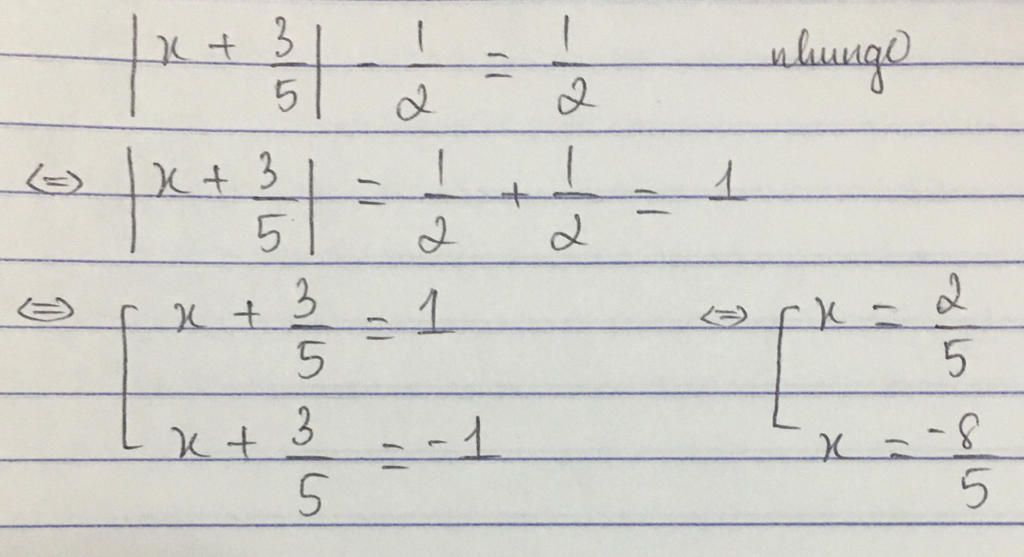 |x + 3/5| - 1/2 = 1/2 nhungo
<=> |x + 3/5| = 1/2 + 1/2 = 1
<=> [ x + 3/5 = 1 <=> [ x = 2/5
x + 3/5 = -1 x = -8/5